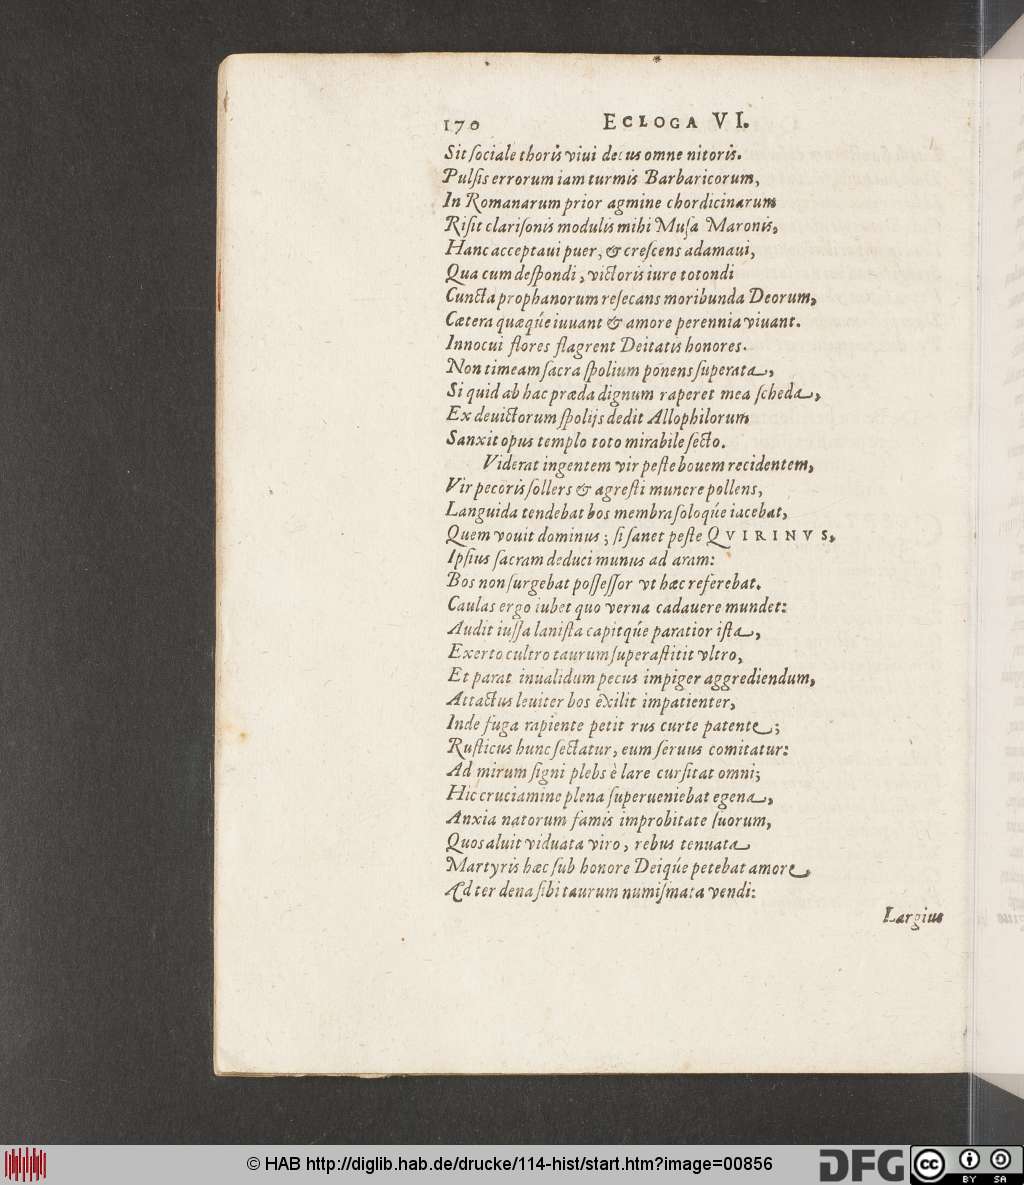 170 ECLOGA VI.
Sit sociale thoris viui decus omne nitoris.
Pulsis errorum iam turmis Barbaricorum,
In Romanarum prior agmine chordicinarum
Risit clarisonis modulis mihi Musa Maronis,
Hanc acceptaui puer, & crescens adamaui,
Qua cum despondi, victoris iure totondi
Cuncta prophanorum resecans moribunda Deorum,
Cætera quæq́ue iuuant & amore perennia viuant.
Innocui flores flagrent Deitatis honores.
Non timeam sacra spolium ponens superata,
Si quid ab hac præda dignum raperet mea scheda,
Ex deuictorum spolijs dedit Allophilorum
Sanxit opus templo toto mirabile secto.
Viderat ingentem vir peste bouem recidentem,
Vir pecoris sollers & agresti munere pollens,
Languida tendebat bos membra soloq́ue iacebat,
Quem vouit dominus; si sanet peste QVIRINVS,
Ipsius sacram deduci munus ad aram:
Bos non surgebat possessor vt hæc referebat.
Caulas ergo iubet quo verna cadauere mundet:
Audit iussa lanista capitq́ue paratior ista,
Exerto cultro taurum superastitit vltro,
Et parat inualidum pecus impiger aggrediendum,
Attactus leuiter bos exilit impatienter,
Inde fuga rapiente petit rus curte patente;
Rusticus hunc sectatur, eum seruus comitatur:
Ad mirum signi plebs è lare cursitat omni;
Hic cruciamine plena superueniebat egena,
Anxia natorum famis improbitate suorum,
Quos aluit viduata viro, rebus tenuata
Martyris hæc sub honore Deiq́ue petebat amore
Æd ter dena sibi taurum numismata vendi:
Largius
© HAB http://diglib.hab.de/drucke/114-hist/start.htm?image=00856
DFG
cc
BY SA